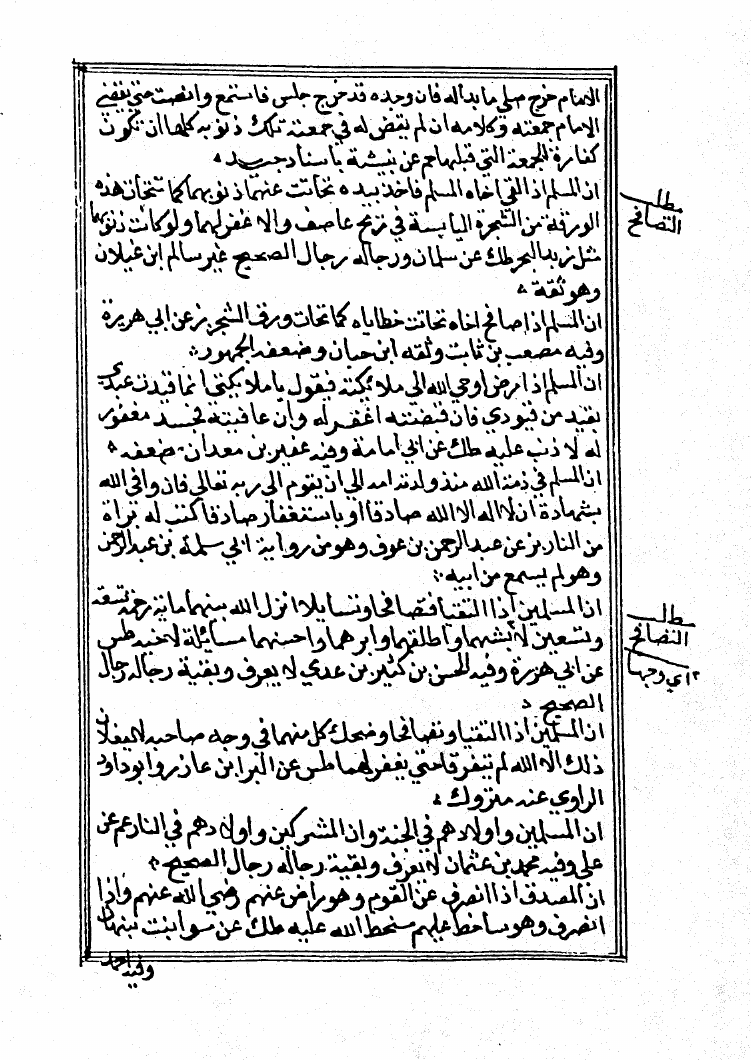 الامام خرج صلي ما بدا له فان وجده قد خرج جلس فاستمع وانصت حتى يقضي
الامام جمعته وكلامه ان لم يغفر له في جمعته تلك ذنوبه كلها ان تكون
كفارة للجمعة التي قبلها حم عن نبيشة باسناد جيد
ان المسلم اذا لقي اخاه المسلم فاخذ بيده تحاتت عنهما ذنوبهما كما تتحات هذه
مطلب
التصافح
الورقة من الشجرة اليابسة في ريح عاصف والا غفر لهما ولو كانت ذنوبهما
مثل زبد البحر طك عن سلمان ورجاله رجال الصحيح غير سالم ابن غيلان
وهو ثقة
ان المسلم اذا صافح اخاه تحاتت خطاياه كما تحات ورق الشجر بز عن ابي هريرة
وفيه مصعب بن ثابت وثقه ابن حبان وضعفه الجمهور
ان المسلم اذا مرض اوحي الله الي ملائكته فيقول يا ملائكتي انما قيدت عبدي
بقيد من قيودي فان قبضته اغفر له وان عافيته فجسد مغفور
له لا ذنب عليه طك عن ابي امامة وفيه عفير بن معدان ضعفه
ان المسلم في ذمة الله منذ ولدته امه الي ان يقوم الي ربه تعالي فان وافي الله
بشهادة ان لا اله الا الله صادقا او باستغفار صادقا كتب له براة
من النار بز عن عبد الرحمن بن عوف وهو من رواية ابي سلمة بن عبد الرحمن
وهو لم يسمع من ابيه
ان المسلمين اذا التقيا فتصافحا وتسايلا انزل الله بينهما ماية رحمة تسعة
مطلب
التصافح
وتسعين لابشهما واطلقهما وابرهما واحسنهما مسائلة لاخيه طس
اي وجها
عن ابي هريرة وفيه الحسن بن كثير بن عدي لا يعرف وبقية رجاله رجال
الصحيح
ان المسلمين اذا التقيا وتصافحا وضحك كل منهما في وجه صاحبه لا يفعلان
ذلك الا لله لم يتفرقا حتي يغفر لهما طس عن البرا بن عازب وابو داود
الراوي عنه متروك
ان المسلمين واولادهم في الجنة وان المشركين واولادهم في النار عم عن
علي وفيه محمد بن عثمان لا يعرف وبقية رجاله رجال الصحيح
ان المصدق اذا انصرف عن القوم وهو راض عنهم رضي الله عنهم واذا
انصرف وهو ساخط عليهم سخط الله عليه طك عن سرا بنت نبهان
وفيه احمد